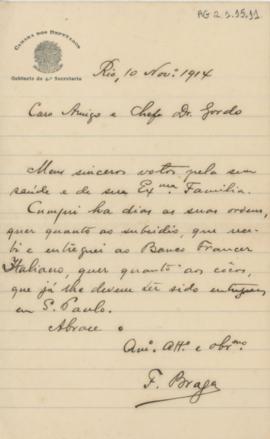 AG 2.3.15.11
CAMARA DOS DEPUTADOS
Gabinete do 4.º Secretario
Rio, 10 Novº 1914
Caro Amigo e Chefe Dr. Gordo
Meus sinceros votos pela sua
saúde e de sua Exma Familia.
Cumpri ha dias as suas ordens,
quer quanto ao subsidio, que rece-
bi e entreguei ao Banco Francez
Italiano, quer quanto aos côcos,
que já lhe devem ter sido entregues
em S. Paulo.
Abrace o
Amº. Attº. e obrmo
F. Braga